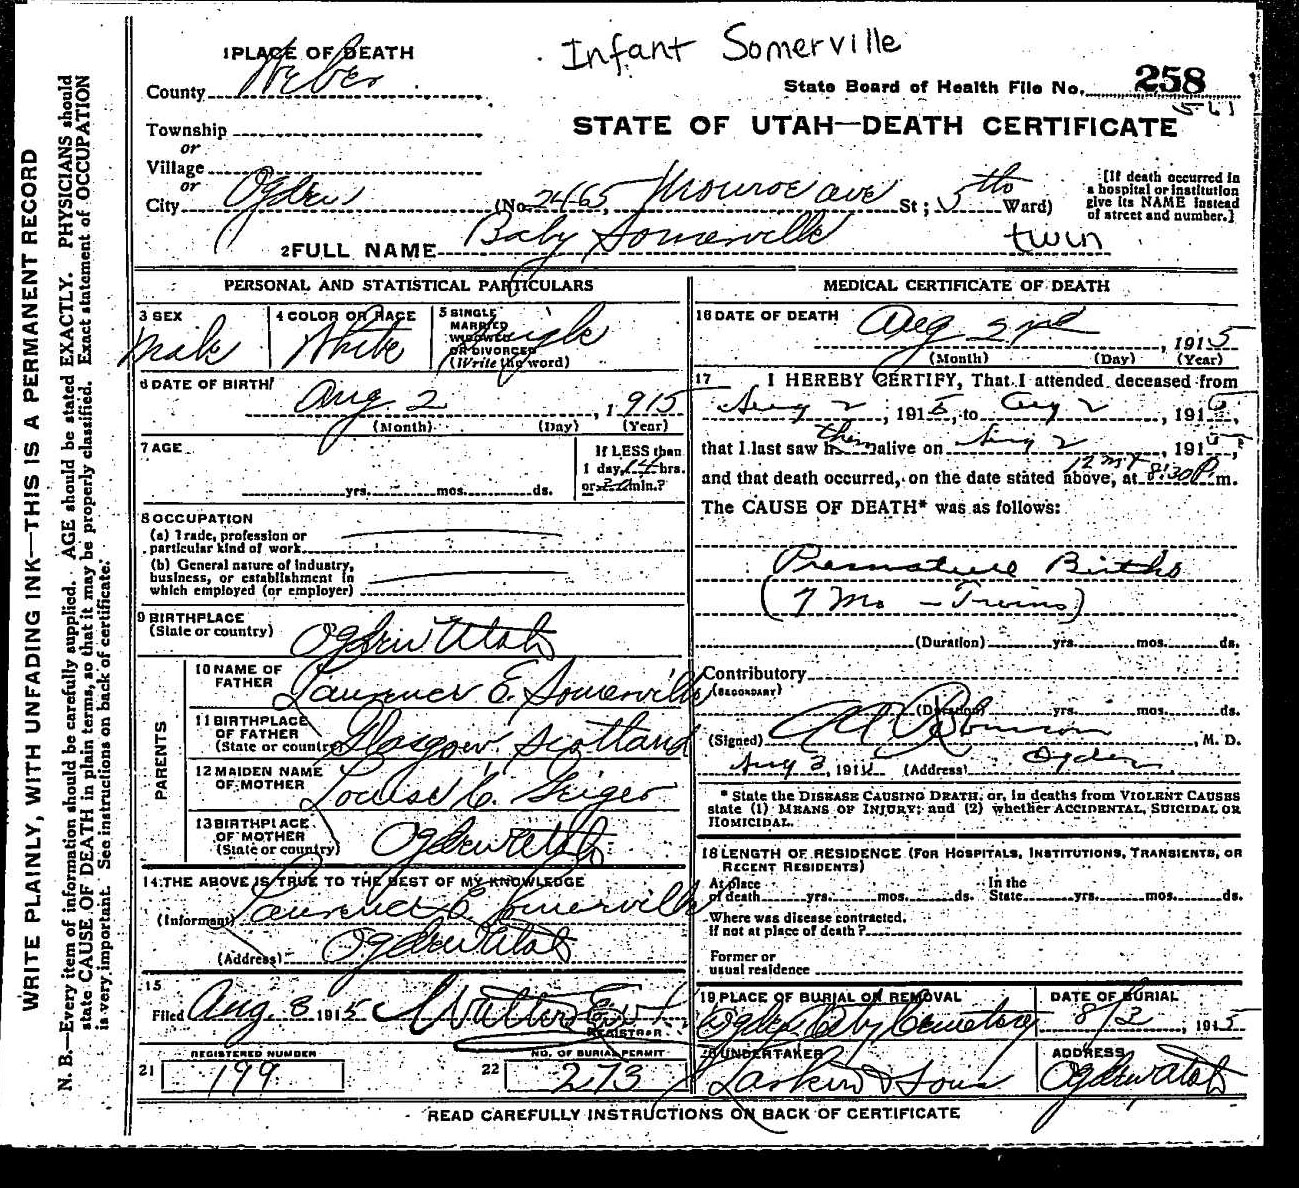 Infant Somerville
1 PLACE OF DEATH
County Weber
State Board of Health File No. 258
561
Township
or
Village
or
City Ogden (No 2465, Monroe ave St; 5th Ward)
STATE OF UTAH—DEATH CERTIFICATE
[If death occurred in
a hospital or institution
give its NAME instead
of street and number.]
2 FULL NAME Baby Somerville twin
PERSONAL AND STATISTICAL PARTICULARS
3 SEX
Male
4 COLOR OR RACE
White
5 SINGLE
MARRIED
WIDOWED
OR DIVORCED
(Write the word)
Single
6 DATE OF BIRTH
Aug 2, 1915
(Month) (Day) (Year)
7 AGE
yrs. mos. ds.
If LESS than
1 day, 14 hrs.
or min.?
8 OCCUPATION
(a) Trade, profession or
particular kind of work
(b) General nature of industry,
business, or establishment in
which employed (or employer)
9 BIRTHPLACE
(State or country) Ogden Utah
PARENTS
10 NAME OF
FATHER Laurence E. Somerville
11 BIRTHPLACE
OF FATHER
(State or country) Glasgow, Scotland
12 MAIDEN NAME
OF MOTHER Louise C. Geiger
13 BIRTHPLACE
OF MOTHER
(State or country) Ogden Utah
14 THE ABOVE IS TRUE TO THE BEST OF MY KNOWLEDGE
(Informant) Laurence E. Somerville
(Address) Ogden Utah
15
Filed Aug. 3 1915 Walter
REGISTRAR
REGISTERED NUMBER
21 199
NO. OF BURIAL PERMIT
22 273
MEDICAL CERTIFICATE OF DEATH
16 DATE OF DEATH
Aug 2nd, 1915
(Month) (Day) (Year)
17 I HEREBY CERTIFY, That I attended deceased from
Aug 2, 1915, to Aug 2, 1915,
that I last saw h them alive on Aug 2, 1915,
and that death occurred, on the date stated above, at 8:30 P. m.
The CAUSE OF DEATH* was as follows:
Premature Births
(7 Mo - Twins)
(Duration) yrs. mos. ds.
Contributory
(SECONDARY)
(Duration) yrs. mos. ds.
(Signed) Robinson, M. D.
Aug 3, 191 (Address) Ogden
* State the DISEASE CAUSING DEATH, or, in deaths from VIOLENT CAUSES
state (1) MEANS OF INJURY; and (2) whether ACCIDENTAL, SUICIDAL OR
HOMICIDAL.
18 LENGTH OF RESIDENCE (FOR HOSPITALS, INSTITUTIONS, TRANSIENTS, OR
RECENT RESIDENTS)
At place
of death yrs. mos. ds.
In the
State yrs. mos. ds.
Where was disease contracted.
If not at place of death?
Former or
usual residence
19 PLACE OF BURIAL OR REMOVAL
Ogden City Cemetery
DATE OF BURIAL
8/3, 1915
20 UNDERTAKER
Larkin & Sons
ADDRESS
Ogden Utah
READ CAREFULLY INSTRUCTIONS ON BACK OF CERTIFICATE
WRITE PLAINLY, WITH UNFADING INK—THIS IS A PERMANENT RECORD
N. B.—Every item of information should be carefully supplied. AGE should be stated EXACTLY. PHYSICIANS should
state CAUSE OF DEATH in plain terms, so that it may be properly classified. Exact statement of OCCUPATION
is very important. See instructions on back of certificate.